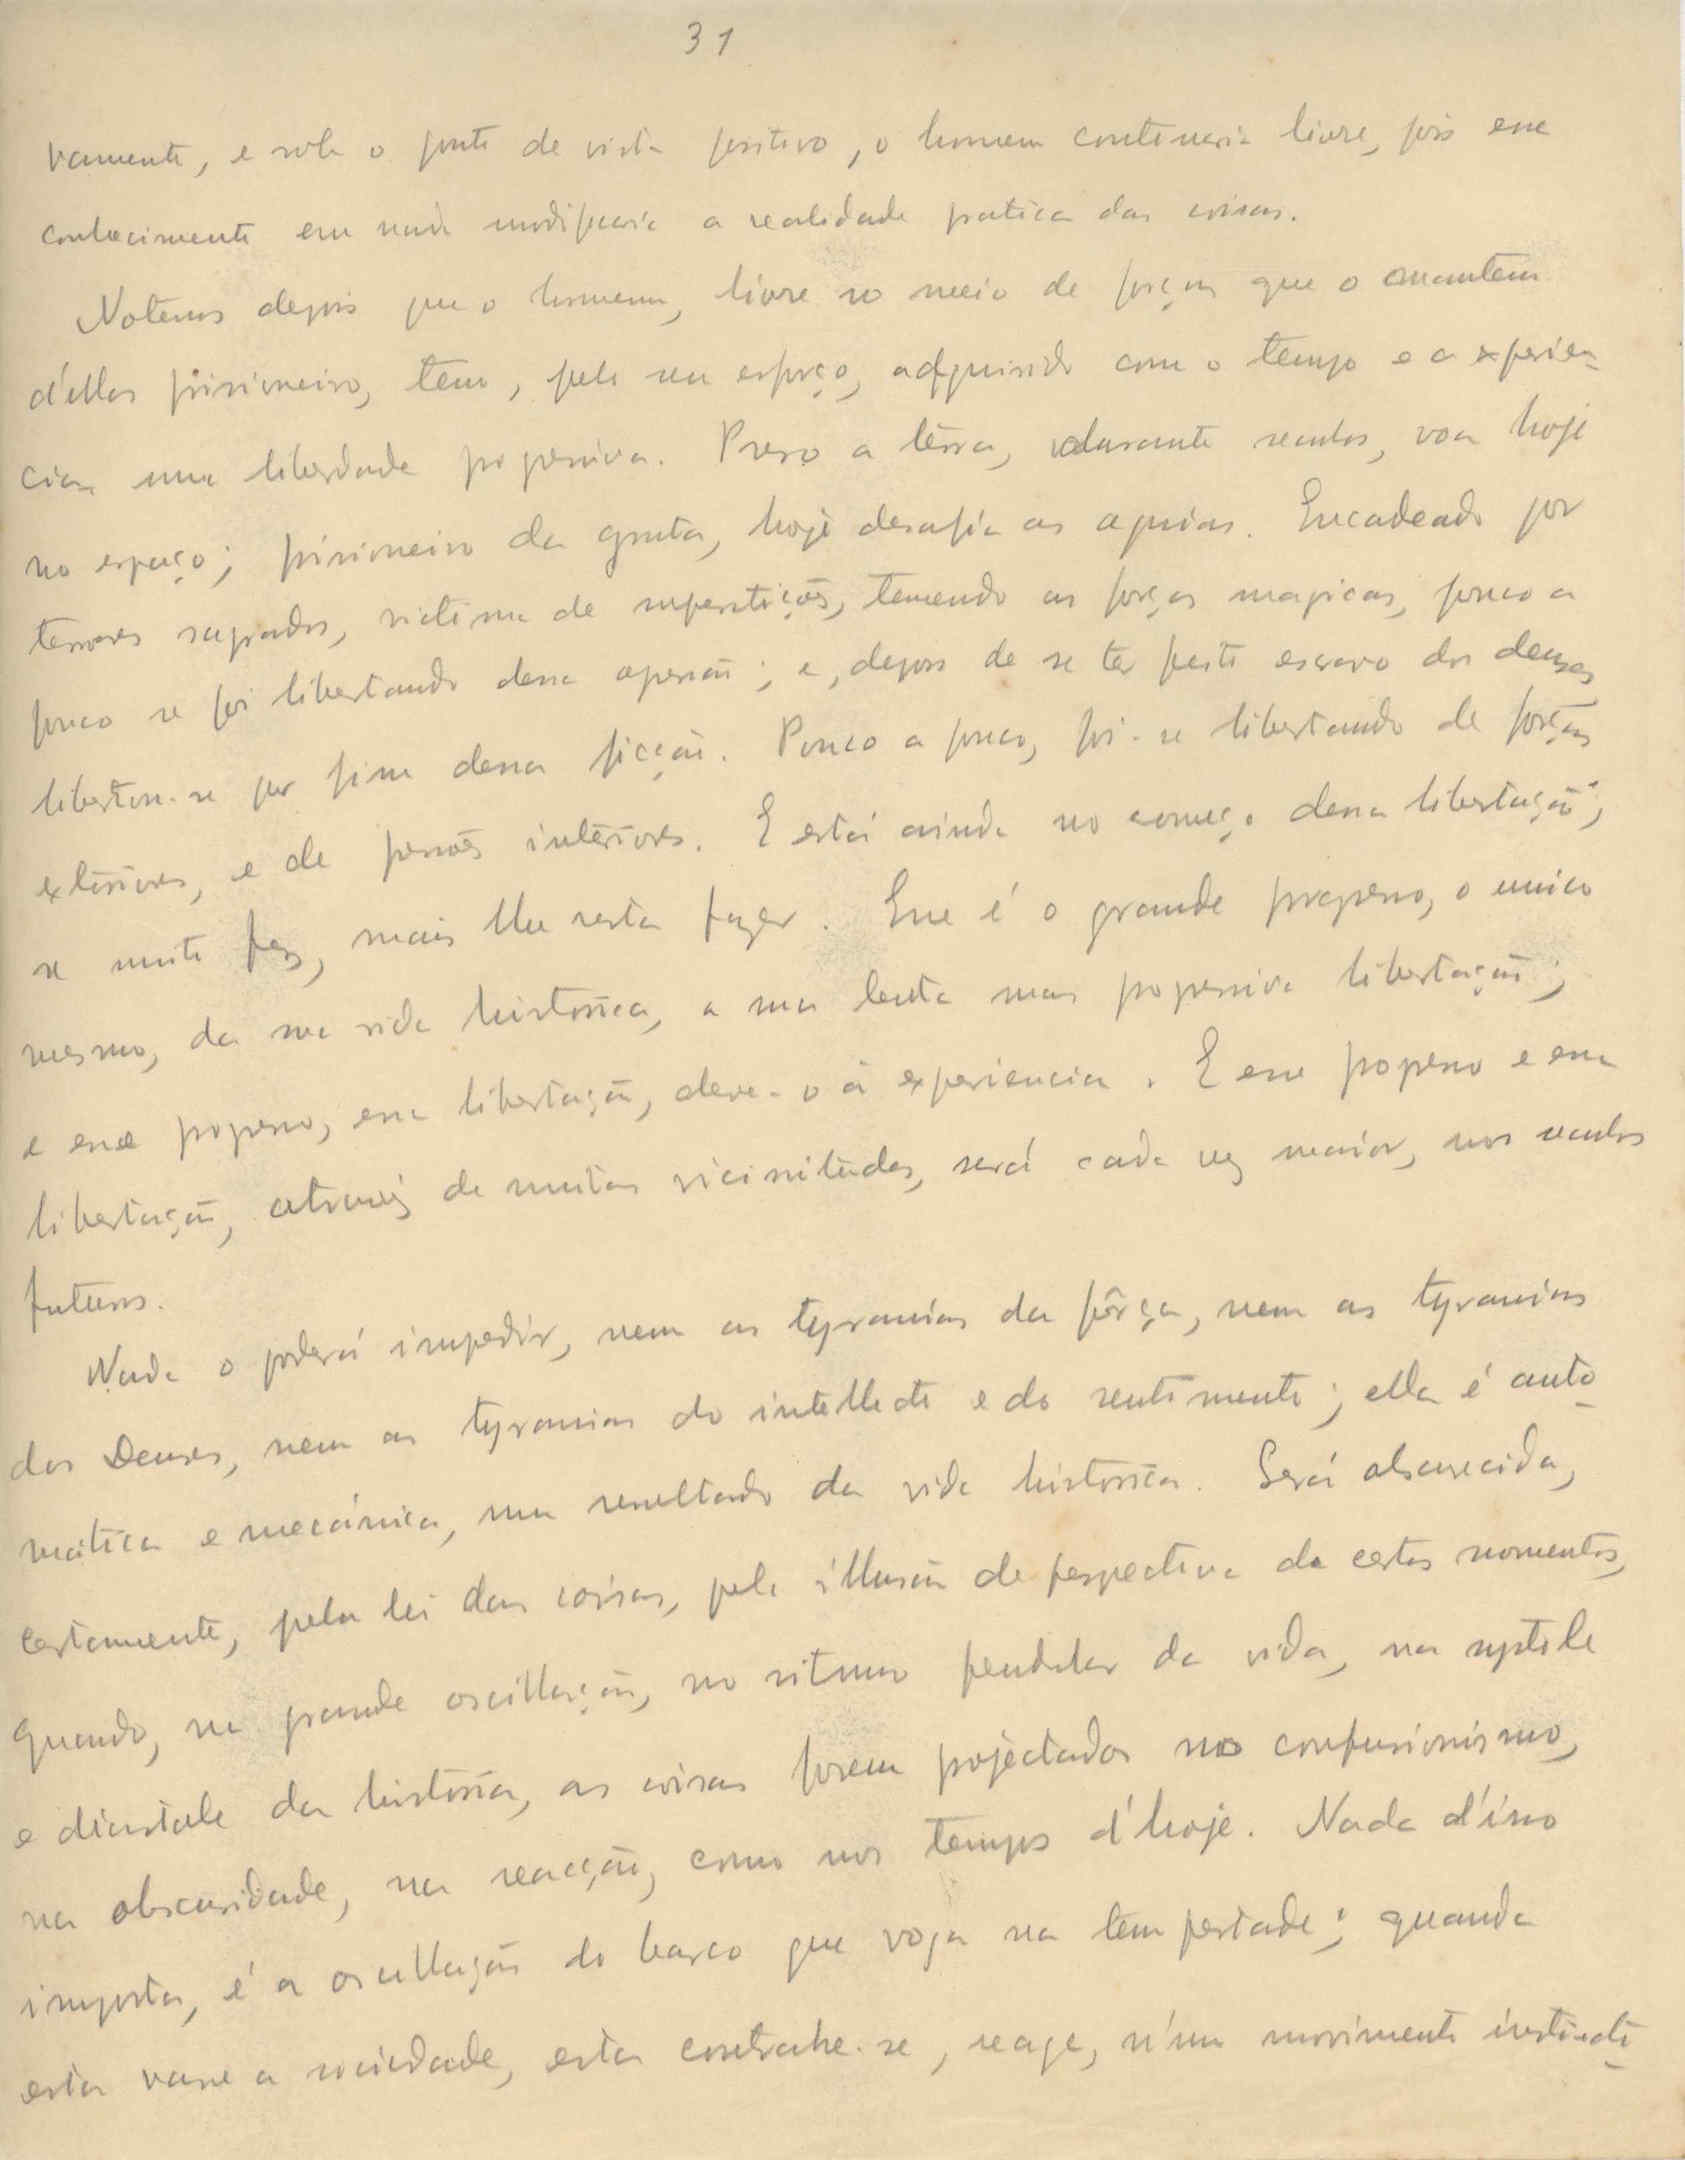 31
vamente, e sob o ponto de vista positivo, o homem continuaria livre, pois esse
conhecimento em nada modificaria a realidade pratica das coisas.
Notemos depois que o homem, livre no meio de forças que o mantem
d'ellas prisioneiro, tem, pelo seu esforço, adquirido com o tempo e a experien-
cia uma liberdade progressiva. Preso a terra, durante seculos, voa hoje
no espaço; prisioneiro da gruta, hoje desafia as aguias. Encadeado por
terrores sagrados, victima de superstições, temendo as forças magicas, pouco a
pouco se foi libertando dessa opressão; e, depois de se ter feito escravo dos deuses
libertou-se por fim dessa ficção. Pouco a pouco, foi-se libertando de forças
exteriores, e de pressões interiores. E está ainda no começo dessa libertação;
se muito fez, mais lhe resta fazer. Esse é o grande progresso, o unico
mesmo, da sua vida historica, a sua lenta mas progressiva libertação;
e esse progresso, essa libertação, deve-o á experiencia. E esse progresso e essa
libertação, atravez de muitas vicissitudes, será cada vez maior, nos seculos
futuros.
Nada o poderá impedir, nem as tyranias da fôrça, nem as tyranias
dos Deuses, nem as tyranias do intellecto e do sentimento; ella é auto-
matica e mecánica, um resultado da vida historica. Será obscurecida,
certamente, pela lei das coisas, pela illusão de perspectiva de certos momentos,
quando, na grande oscillação, no ritmo pendular da vida, na systole
e diastole da historia, as coisas forem projectadas no confusionismo,
na obscuridade, na reacção, como nos tempos d'hoje. Nada d'isso
importa, é a oscillação do barco que voga na tempestade; quando
esta varre a sociedade, esta contrahe-se, reage, n'um movimento instincti-